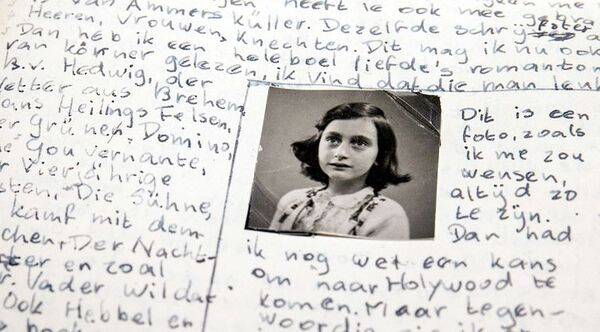 is van Ammers Küller. Dezelfde schrij
Heeren, Vrouwen, Knechten. Dit mag ik nu ook
Dan heb ik een heleboel liefde's romanton
van körner gelezen, ik vind dat die man leuk
B.v. Hedwig, der
Vetter aus Brehem,
ns Heilings Felsen,
er grüner Domino,
e Gouvernante,
r Vierjährige
sten, Die Sühne,
kamf mit dem
chen, Der Nacht-
ter en zoal
r. Vader wil dat
ook Hebbel en
Dit is een
foto, zoals
ik me zou
wensen,
altijd zo
te zijn.
Dan had
ik nog wet een kans
om naar Holywood te
komen. Maar tegen-
woordig